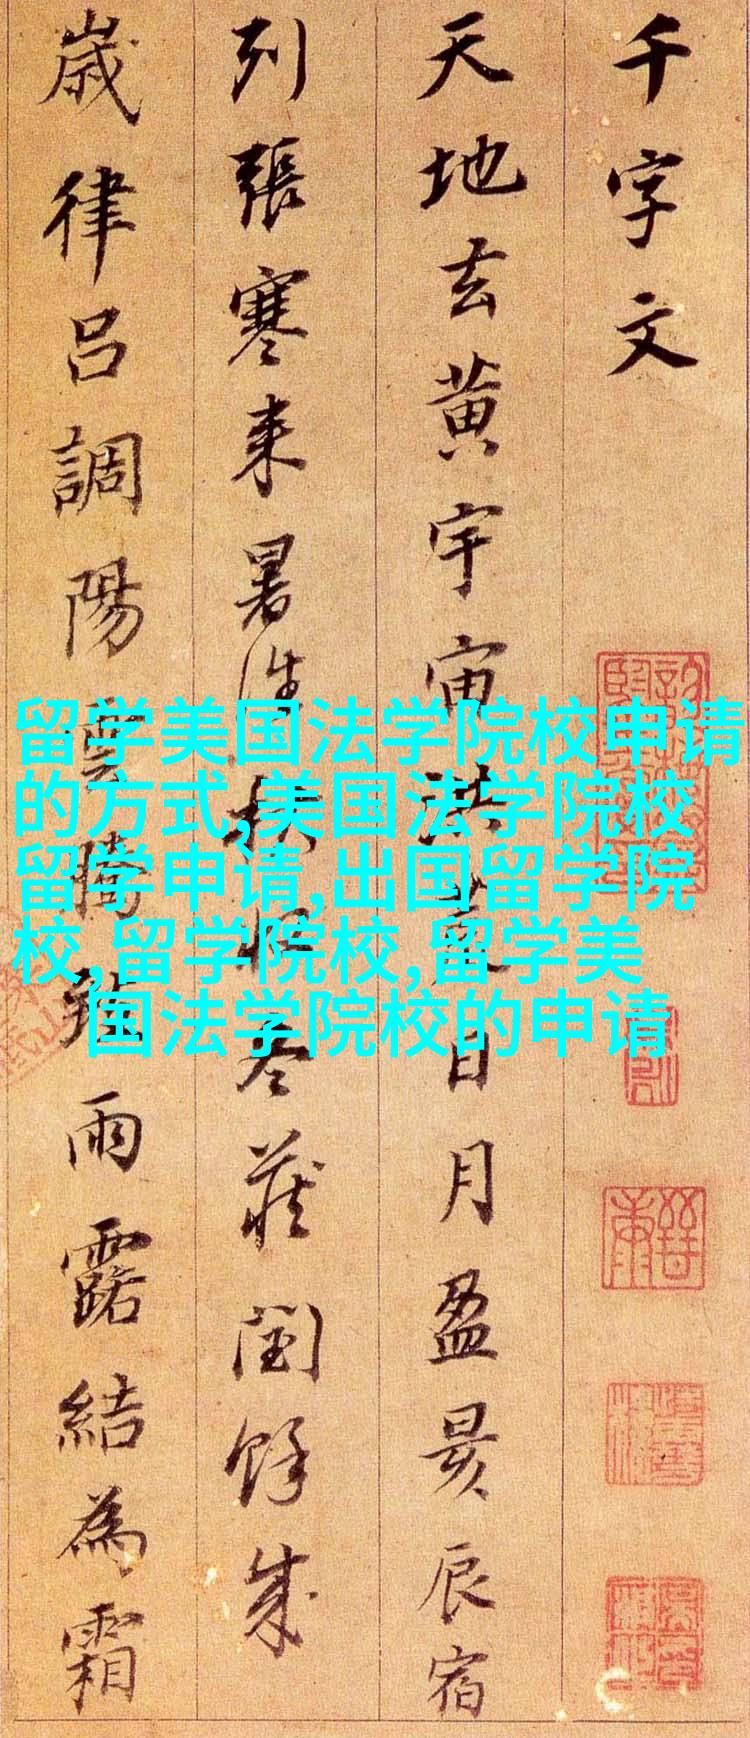 千字文
天地玄黄宇宙洪荒日月盈昃辰宿
列張寒来暑往秋收冬蔵閏餘成
歲律吕調陽雲騰致雨露結為霜
留学美国法学院校申请
的方式,美国法学院校
留学申请,出国留学院
校,留学院校,留学美
国法学院校的申请